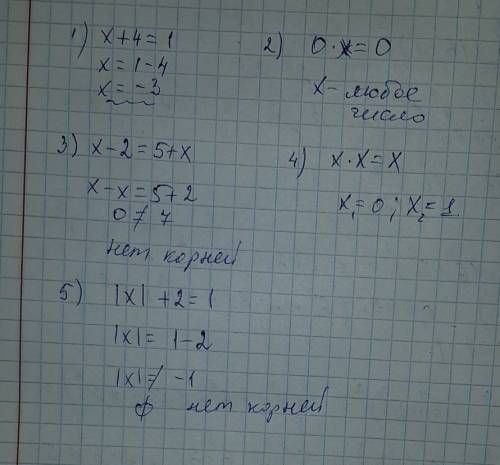 1) x+4=1
x=1-4
x=-3
2) 0·x=0
x- любое
число
3) x-2=5+x
x-x=5+2
0≠7
нет корней
4) x·x=x
x₁=0; x₂=1
5) |x|+2=1
|x|= 1-2
|x|≠ -1
ф нет корней